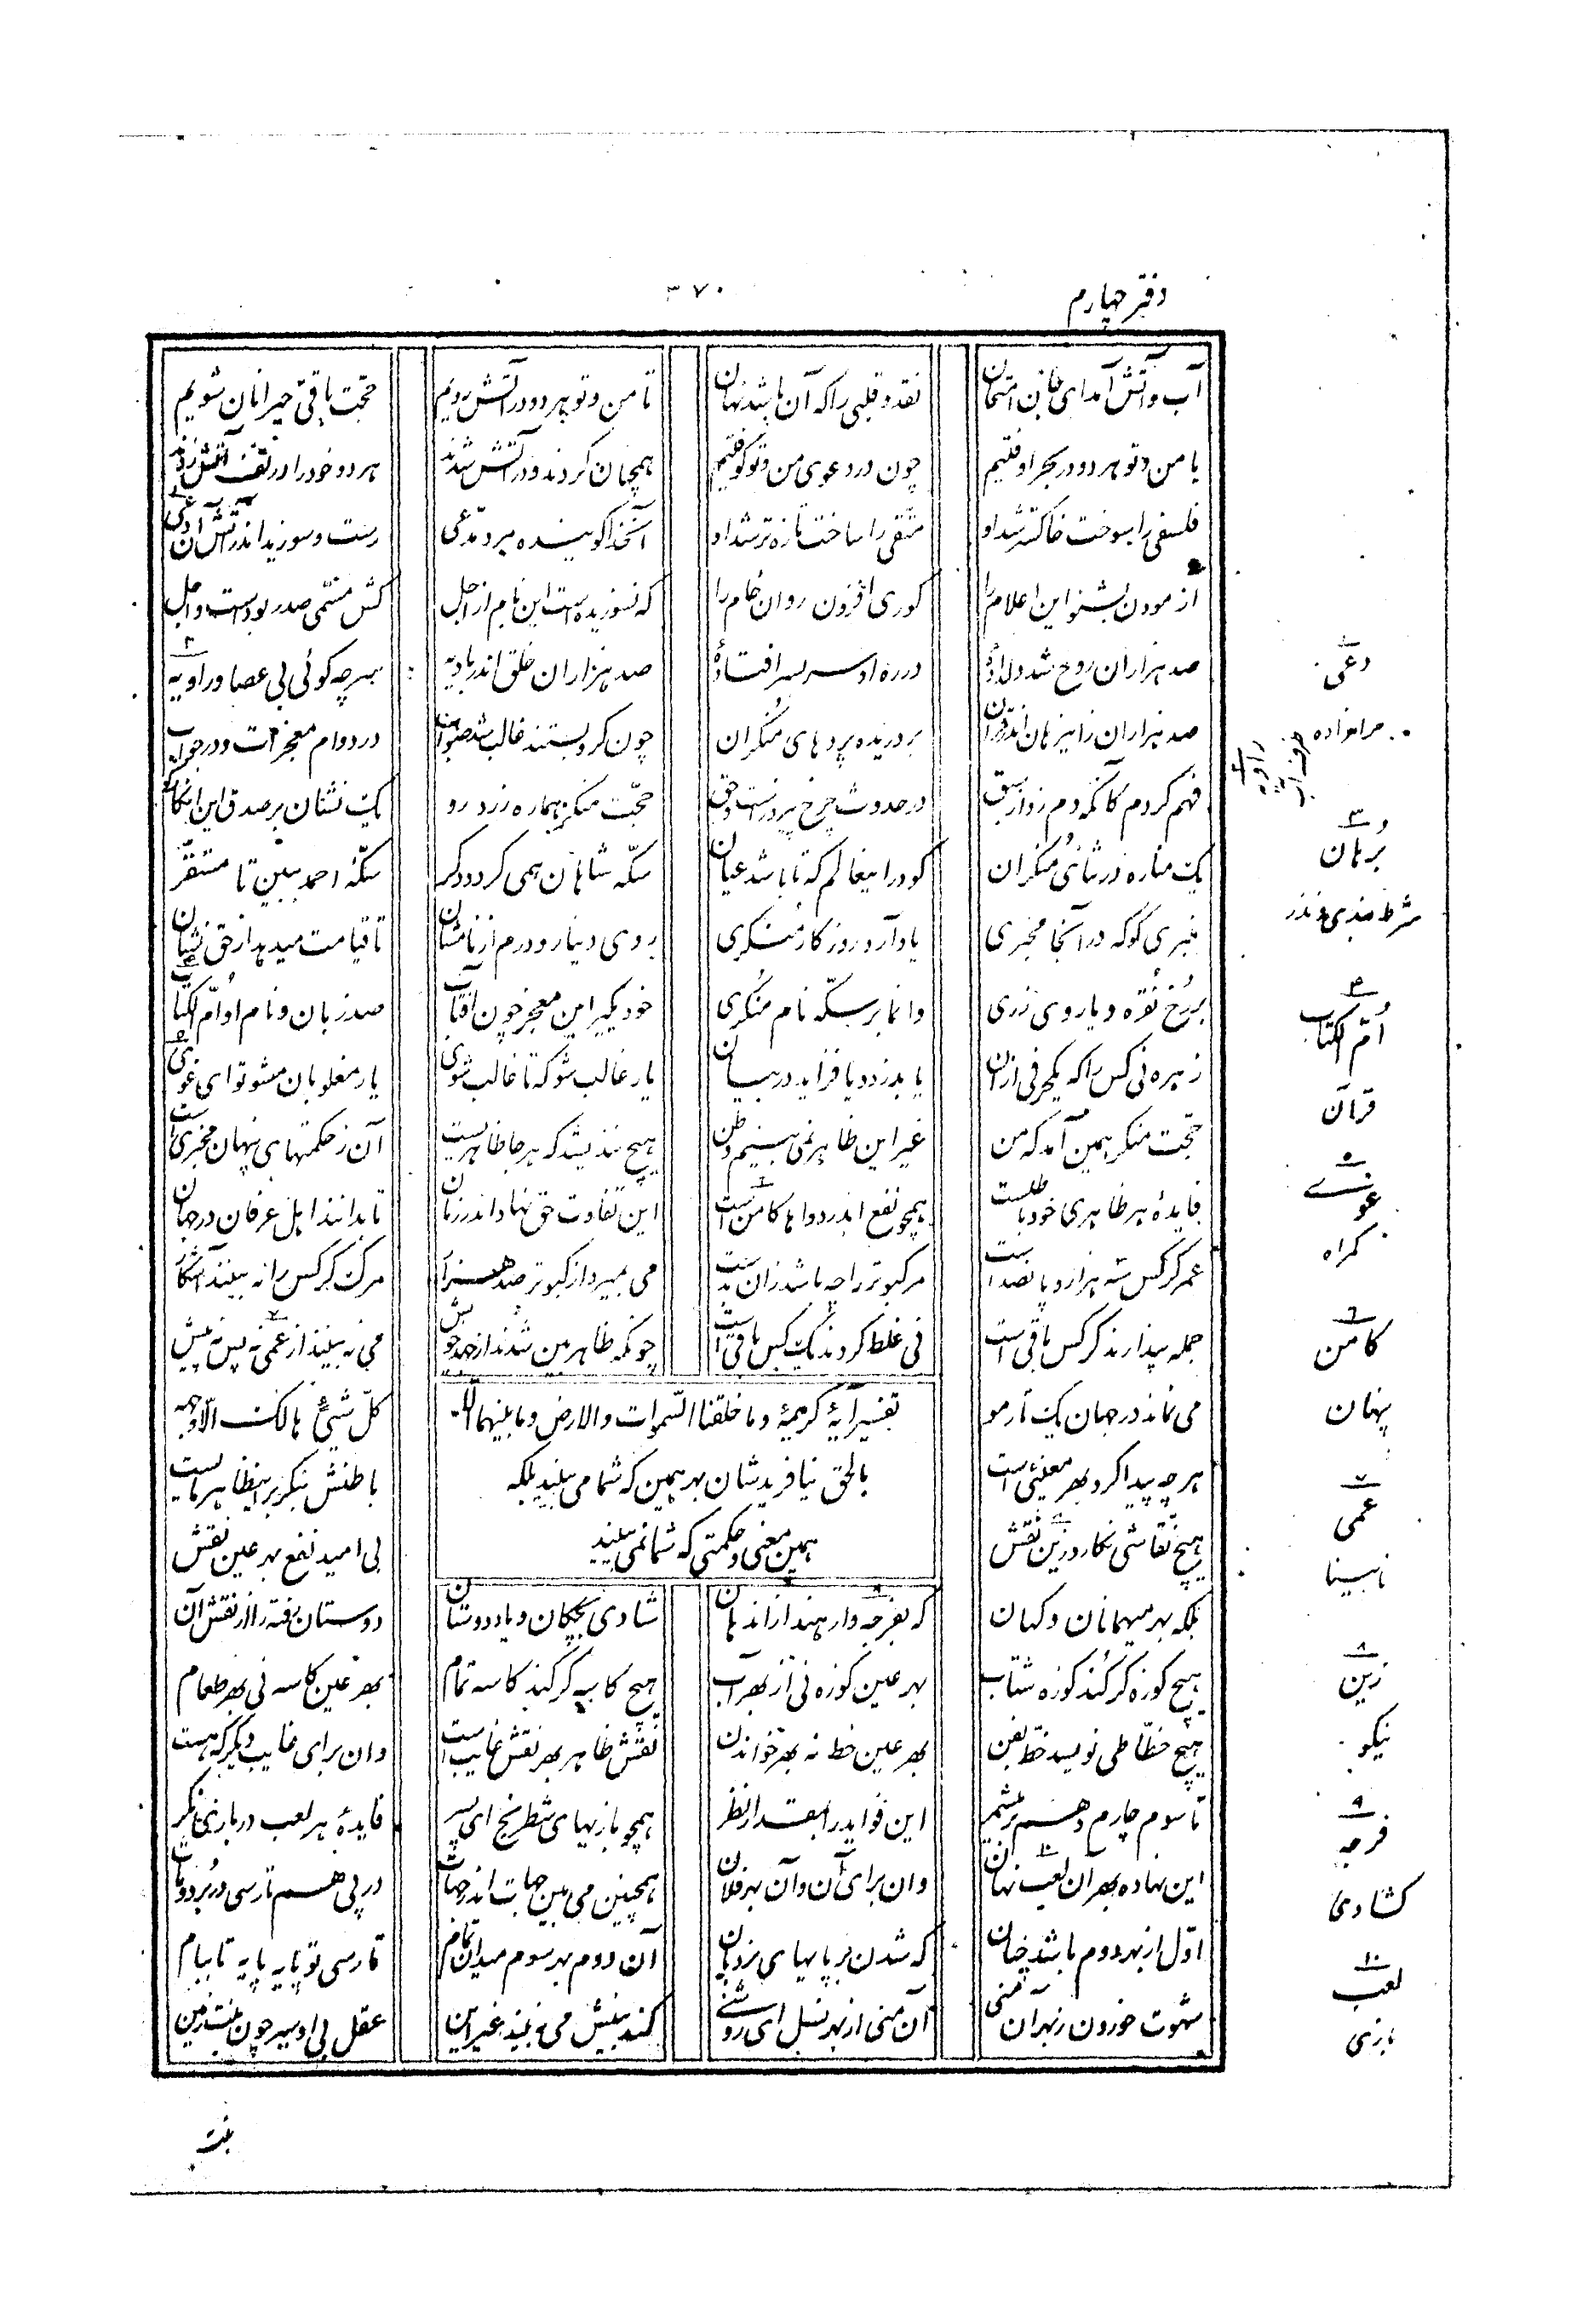 دفتر چهارم
۳۷۰
آب و آتش آمد ای جان امتحان نقد و قلبی را که آن باشد نهان تا من و تو هر دو در آتش رویم حجت باقی حیرانان شویم
یا من و تو هر دو در بحر اوفتیم چون در دعوی من و تو کوفتیم همچنان کردند و در آتش شدند هر دو خود را در تف آتش زدند
فلسفی را سوخت خاکستر شد او متقی را ساخت تازه‌تر شد او آن خدا گوینده مرد مدعی رست و سوزید اندر آتش آن دعی
از موذن بشنو این اعلام را کوری افزون روان خام را که نسوزیده است این نام از اجل کش مسمی صدر بودست و اجل
صد هزاران روح شد دلداده در ره او سر بسر افتاده صد هزاران خلق اندر بادیه هرچه گوئی بی عصا و راویه
صد هزاران را نیز هان اندر قران بر دریده پردهای منکران چون گرو بستند غالب شد صواب در دوام معجزات و در جواب
فهم کردم کانکه دم زد از سبق در حدوث چرخ پیروزست و حق حجت منکر هماره زرد رو یک نشان بر صدق این انکار کو
یک مناره در ثنای منکران کو در این عالم که تا باشد عیان سکه شاهان همی گردد دگر سکه احمد ببین تا مستقر
منبری کو که در آنجا مخبری یاد آرد روزگار منکری روی دینار و درم از نامشان تا قیامت میدهد از حق نشان
بر رخ نقره و یا روی زری وانما بر سکه نام منکری خود بگیر این معجز چون آفتاب صد زبان و نام او ام الکتاب
زهره نی کس را که یک حرفی از آن یا بدزدد یا فزاید در بیان یار غالب شو که تا غالب شوی یار مغلوبان مشو تو ای غوی
حجت منکر همین آمد که من غیر این ظاهر نمی بینم وطن هیچ نندیشد که هر جا ظاهریست آن ز حکمتهای پنهان مخبریست
فایدهٔ هر ظاهری خود باطنست همچو نفع اندر دواها کامن است این تفاوت حق نهاد اندر زمان تا بدانند اهل عرفان در جهان
عمر کرکس سه هزار و پانصد است مر کبوتر را چه باشد زان بدست می بمیرد از کبوتر صد هزار مرگ کرکس را نه بینند آشکار
جمله پندارند کرکس باقی است نی غلط کردند یک کس باقی است چونکه ظاهربین شدند از جهد خویش می نه بینند از عمی نه پس نه پیش
می نماند در جهان یک تار مو کل شیء هالک الا وجهه
تفسیر آیهٔ کریمهٔ وما خلقنا السموات والارض وما بینهما الا
بالحق نیافریدشان بهر همین که شما می بینید بلکه
همین معنی و حکمتی که شما نمی بینید
هر چه پیدا کرد بهر معنیی است باطنش بنگر بر این ظاهر مایست
هیچ نقاشی نگارد زین نقش بی امید نفع بهر عین نقش
بلکه بهر میهمانان و کهان که بفرجه وارهند از اندهان شادی بچگان و یاد دوستان دوستان رفته را از نقش آن
هیچ کوزه گر کند کوزه شتاب بهر عین کوزه نی از بهر آب هیچ کاسه گر کند کاسه تمام بهر عین کاسه نی بهر طعام
هیچ خطاطی نویسد خط بفن بهر عین خط نه بهر خواندن نقش ظاهر بهر نقش غایب است وان برای غایب دیگر که هست
تا سوم چارم دهم بر میشمر این فواید را بمقدار نظر همچو بازیهای شطرنج ای پسر فایدهٔ هر لعب در بازی نگر
این نهاده بهر آن لعب نهان وان برای آن و آن بهر فلان همچنین می بین جهات اندر جهات در پی هم تا رسی در برد و مات
اول از بهر دوم باشد چنان که شدن بر پایهای نردبان آن دوم بهر سوم میدان تمام تا رسی تو پایه پایه تا ببام
شهوت خوردن ز بهر آن منی آن منی از بهر نسل ای روشنی کند بینش می نبیند غیر این عقل بی او سیر چون نبت زمین
نبت
۱
دعی
حرامزاده
۲
راویه
ظرف آب
۳
برهان
شرط بندی و نذر
۴
ام الکتاب
قرآن
۵
غوی
گمراه
۶
کامن
پنهان
۷
عمی
نابینا
۸
زین
نیکو
۹
فرجه
گشادی
۱۰
لعب
بازی